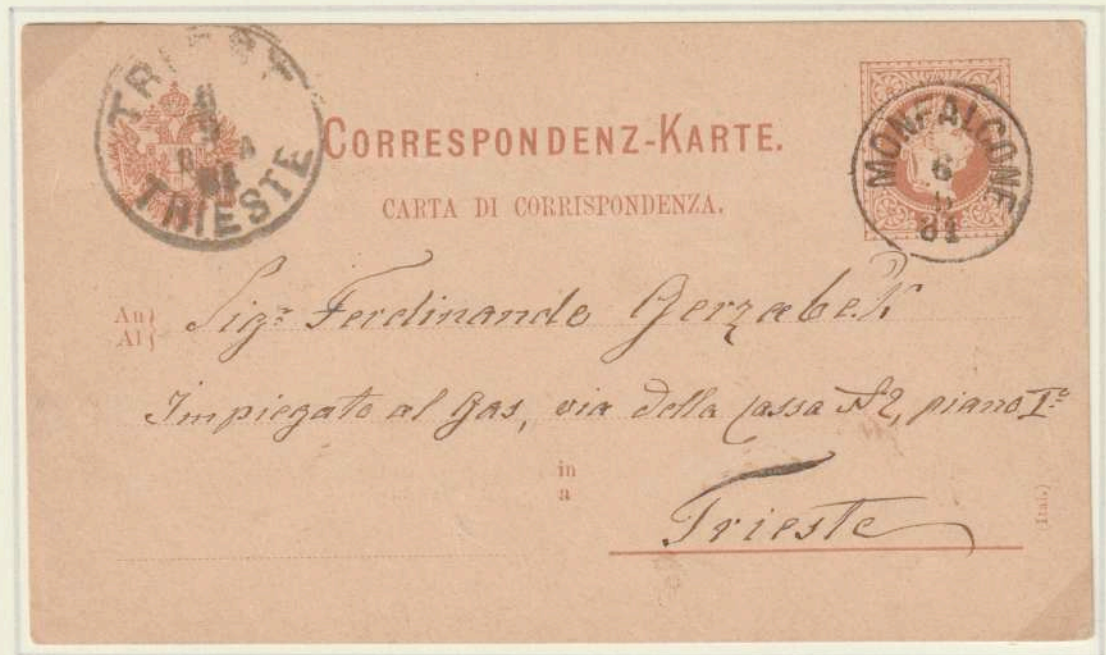 TRIEST
TRIESTE
CORRESPONDENZ-KARTE.
CARTA DI CORRISPONDENZA.
MONFALCONE
9
81
An
Al
Sigr. Ferdinando Gerzabek
Impiegato al Gas, via della Cassa N2, piano Io
in
a
Trieste
(Ital.)